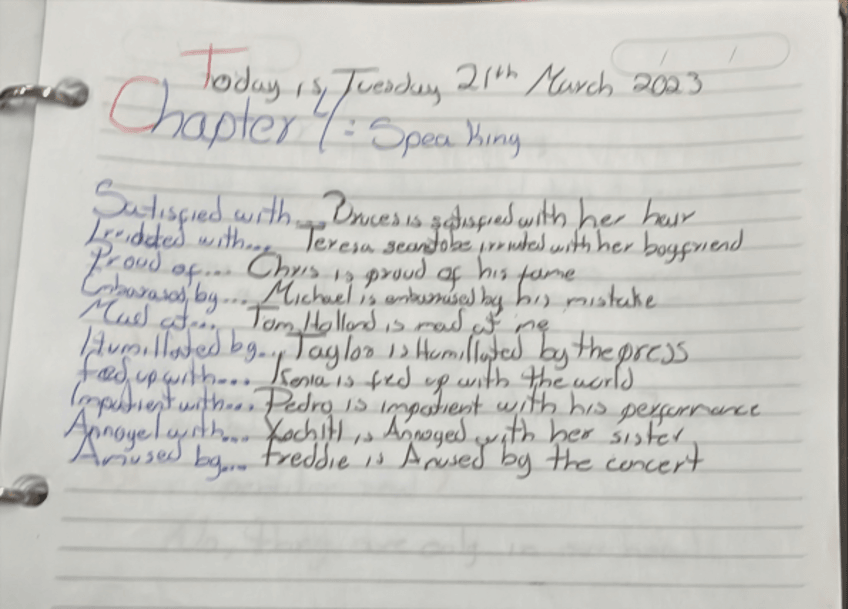 Today is, Tuesday 21th March 2023
Chapter 4: Speaking
Satisfied with... is satisfied with her hair
with... Teresa be irritated with her boyfriend
Proud of... Chris is proud of his fame
by... Michael is by his mistake
Mad at... Tom Holland is mad at me
Humillated by... Taylor is Humillated by the press
Fed up with... Kenia is fed up with the world
Impatient with... Pedro is impatient with his performance
Annoyed with... Xochitl is Annoyed with her sister
Amused by... Freddie is Amused by the concert